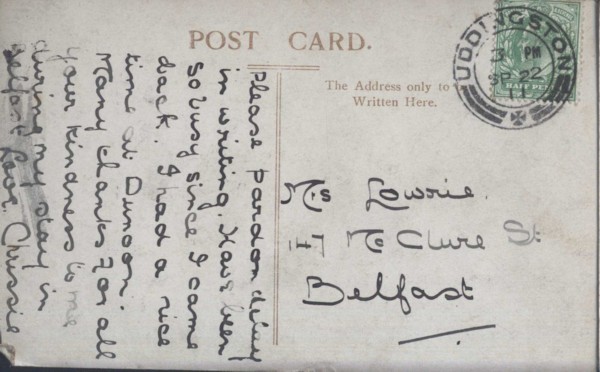 POST CARD.
The Address only to
Written Here.
UDDINGSTON
PM
SP 22
HALF PE
Please pardon delay
in writing. Have been
so busy since I came
back. I had a nice
time at Dunoon.
Many thanks for all
your kindness to me
during my stay in
Belfast. Love, Chrissie
Mrs Lowrie.
47 Mc Clure St
Belfast